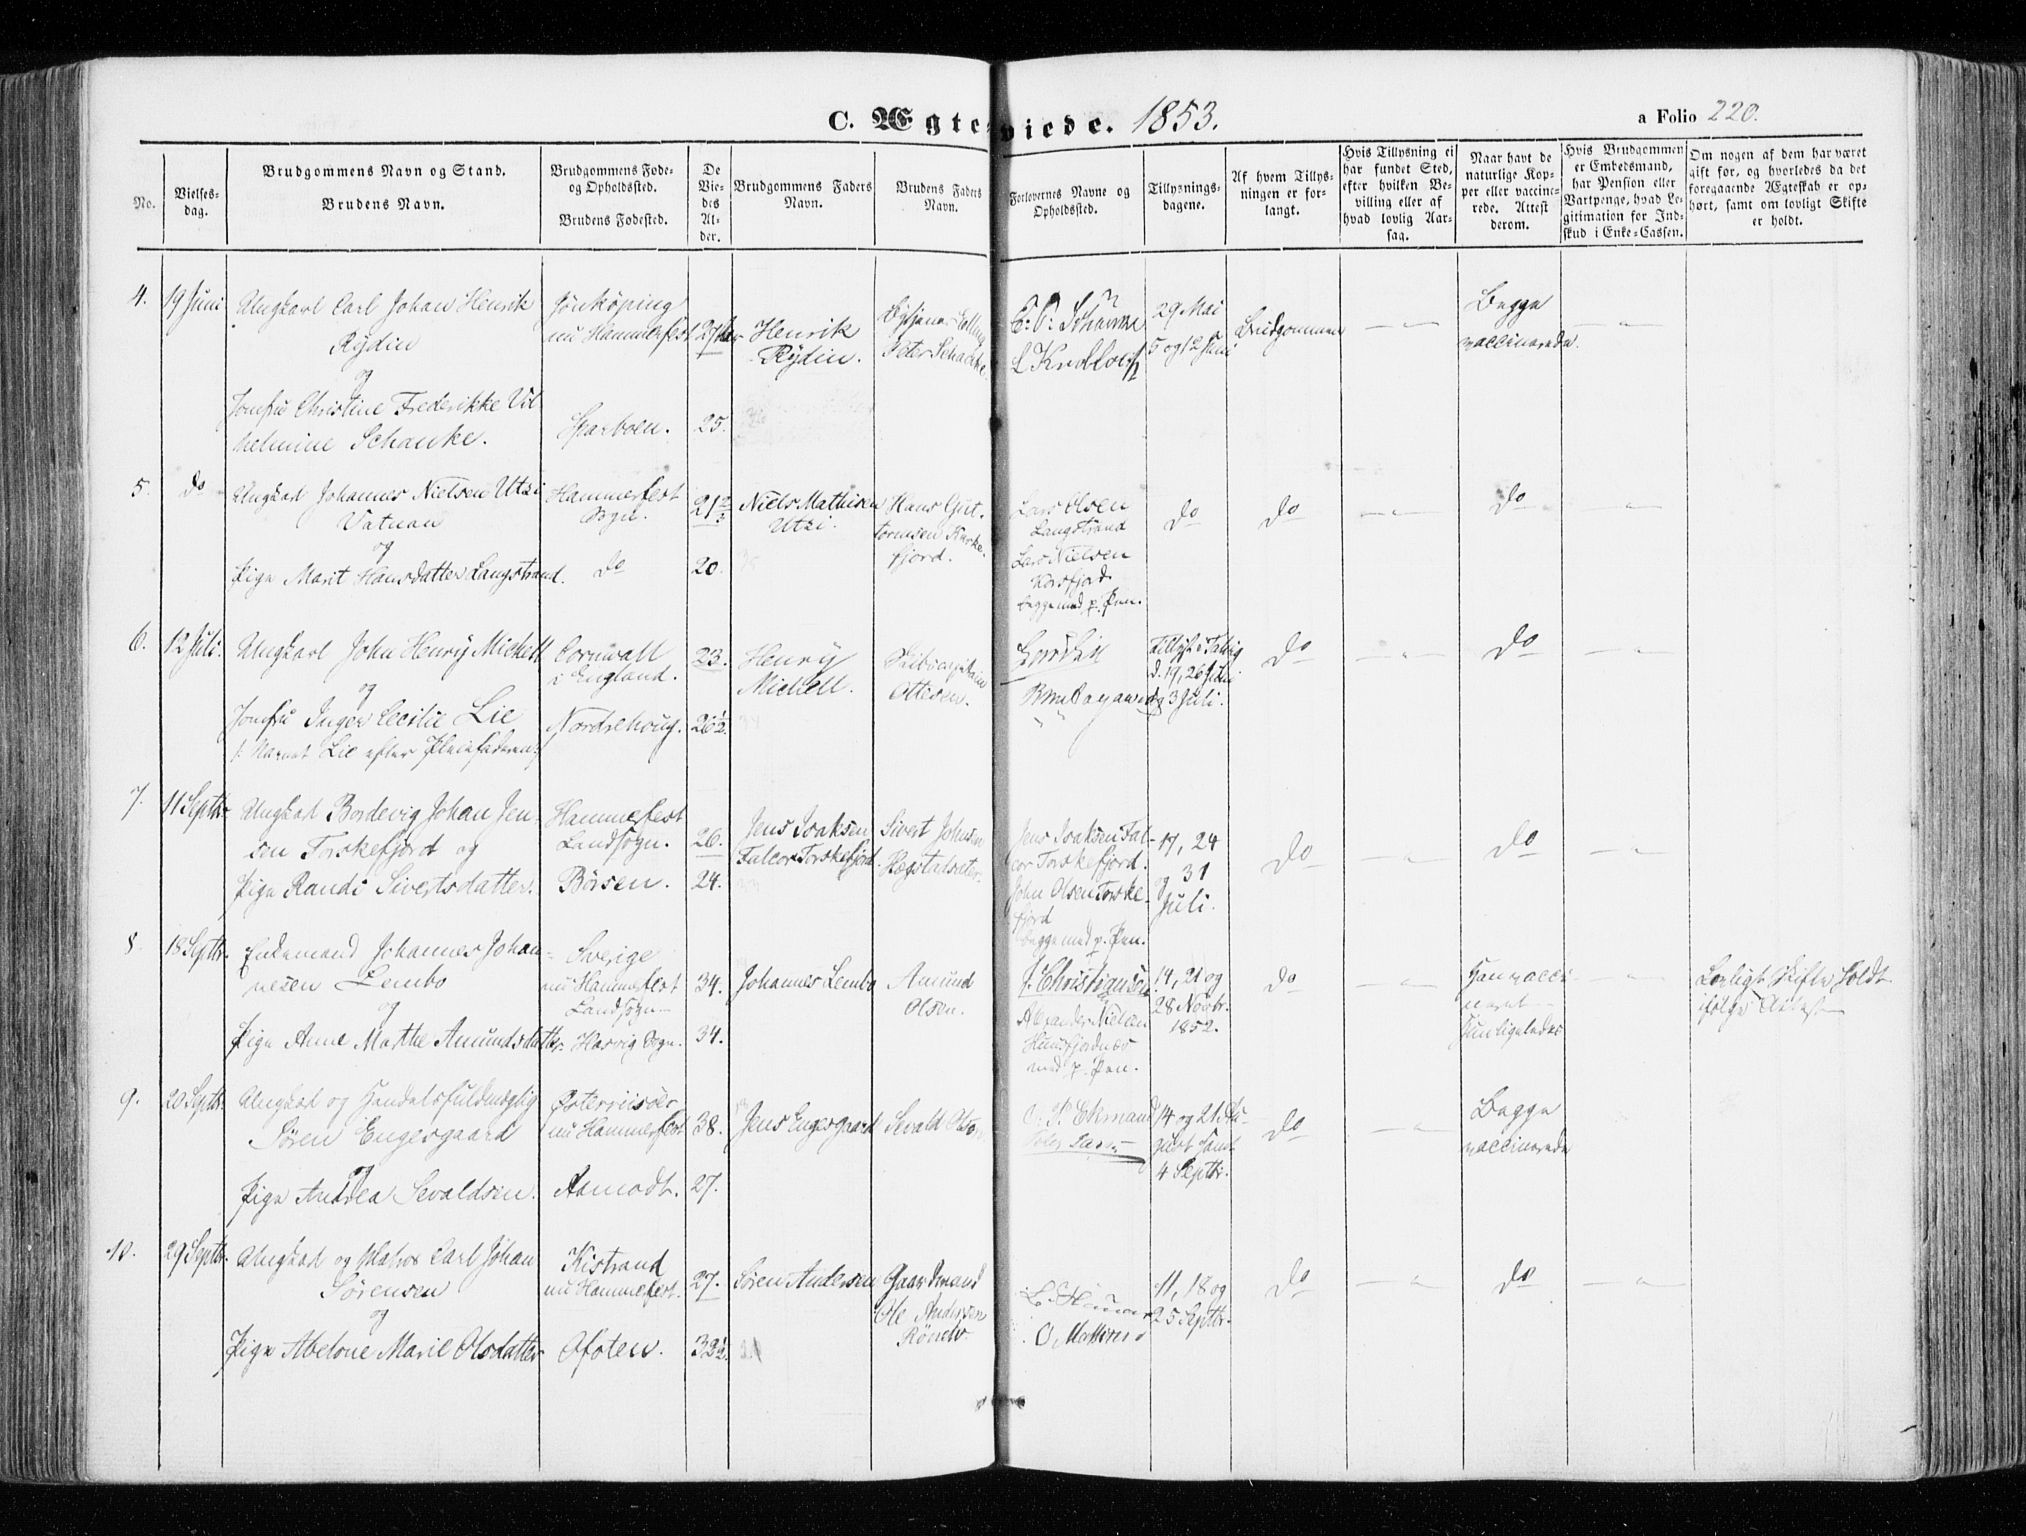 C. Ægteviede. 1853.
a Folio 220.
No.
Vielses-
dag.
Brudgommens Navn og Stand.
Brudens Navn.
Brudgommens Føde-
og Opholdssted.
Brudens Fødested.
De
Vie-
des
Al-
der.
Brudgommens Faders
Navn.
Brudens Faders
Navn.
Forlovernes Navne og
Opholdssted.
Tillysnings-
dagene.
Af hvem Tillys-
ningen er for-
langt.
Hvis Tillysning ei
har fundet Sted,
efter hvilken Be-
villing eller af
hvad lovlig Aar-
sag.
Naar havt de
naturlige Kop-
per eller vaccine-
rede. Attest
derom.
Hvis Brudgommen
er Embedsmand,
har Pension eller
Vartpenge, hvad Le-
gitimation for Ind-
skud i Enke-Cassen.
Om nogen af dem har været
gift før, og hvorledes da det
foregaaende Ægteskab er op-
hørt, samt om lovligt Skifte
er holdt.
4.
19 Juni
Ungkarl Carl Johan Henrik
Rydin
og
Jomfru Christine Frederikke Vil
helmine Schanke.
Jönköping
nu Hammerfest
Sparboen.
27
25.
Henrik
Rydin.
Peter Schanke.
29 Mai
5 og 12 Juni
Brudgommen
Begge
vaccinerede.
5.
Do
Ungkarl Johannes Nielsen Utsi
Vatnan
og
Pige Marit Hansdatter Langstrand.
Hammerfest
Sogn.
do
21 2/3
20.
Niels Mathisen
Utsi.
Hans Gut-
tormsen Kurke-
fjord.
Lars Olsen
Langstrand
Lars Nielsen
Korsfjord
begge med p. Pen.
Do
Do
Do
6.
12 Juli.
Ungkarl John Henry Michell
og
Jomfru Inger Cecilie Lie
/: Navnet Lie efter Pleiefaderen :/
Cornwall
i England.
Nordrehoug.
23.
26 1/2.
Henry
Michell.
Skibscapitain
Ottesen.
Tillyst i Talvig
d. 19, 26 Juni
og 3 Juli.
Do
Do
7.
11 Septbr.
Ungkarl Bordevig Johan Jen-
sen Torskefjord og
Pige Randi Sivertsdatter.
Hammerfest
Landsogn.
Børsen.
26.
24.
Jens Isaksen
Falcor Torskefjord
Sivert Johnsen
Hægstadsæter.
Jens Isaksen Fal-
cor Torskefjord.
John Olsen Torske-
fjord
begge med p. Pen.
17, 24
og 31
Juli.
Do
Do
8.
18 Septbr.
Enkemand Johannes Johan-
nesen Lembo
og
Pige Anne Marthe Amundsdatter.
Sverige
nu Hammerfest
Landsogn
Hasvig Sogn.
34.
34.
Johannes Lembo
Amund
Olsen.
J. Christiansen
Alexander Nielsen
med p. Pen.
14, 21 og
28 Novbr.
1852.
Do
Han vacci-
neret
Hun ligeledes
Lovligt Skifte holdt
ifølge Attest
9.
20 Septbr.
Ungkarl og Handelsfuldmægtig
Søren Engesgaard
og
Pige Andrea Sevaldsen.
Østerriisøer
nu Hammerfest
Aamodt.
38.
27.
Jens Engesgaard
Sevald Olsen
O. P. Ekmand
14 og 21 Au-
gust samt
4 Septbr.
Do
Begge
vaccinerede
10.
29 Septbr.
Ungkarl og Matros Carl Johan
Sørensen
og
Pige Abelone Marie Olsdatter
Kistrand
nu Hammerfest.
Ofoten.
27.
32 1/2.
Søren Andersen
Gaardmand
Ole Andersen
O Mathisen
11, 18 og
25 Septbr.
Do
Do